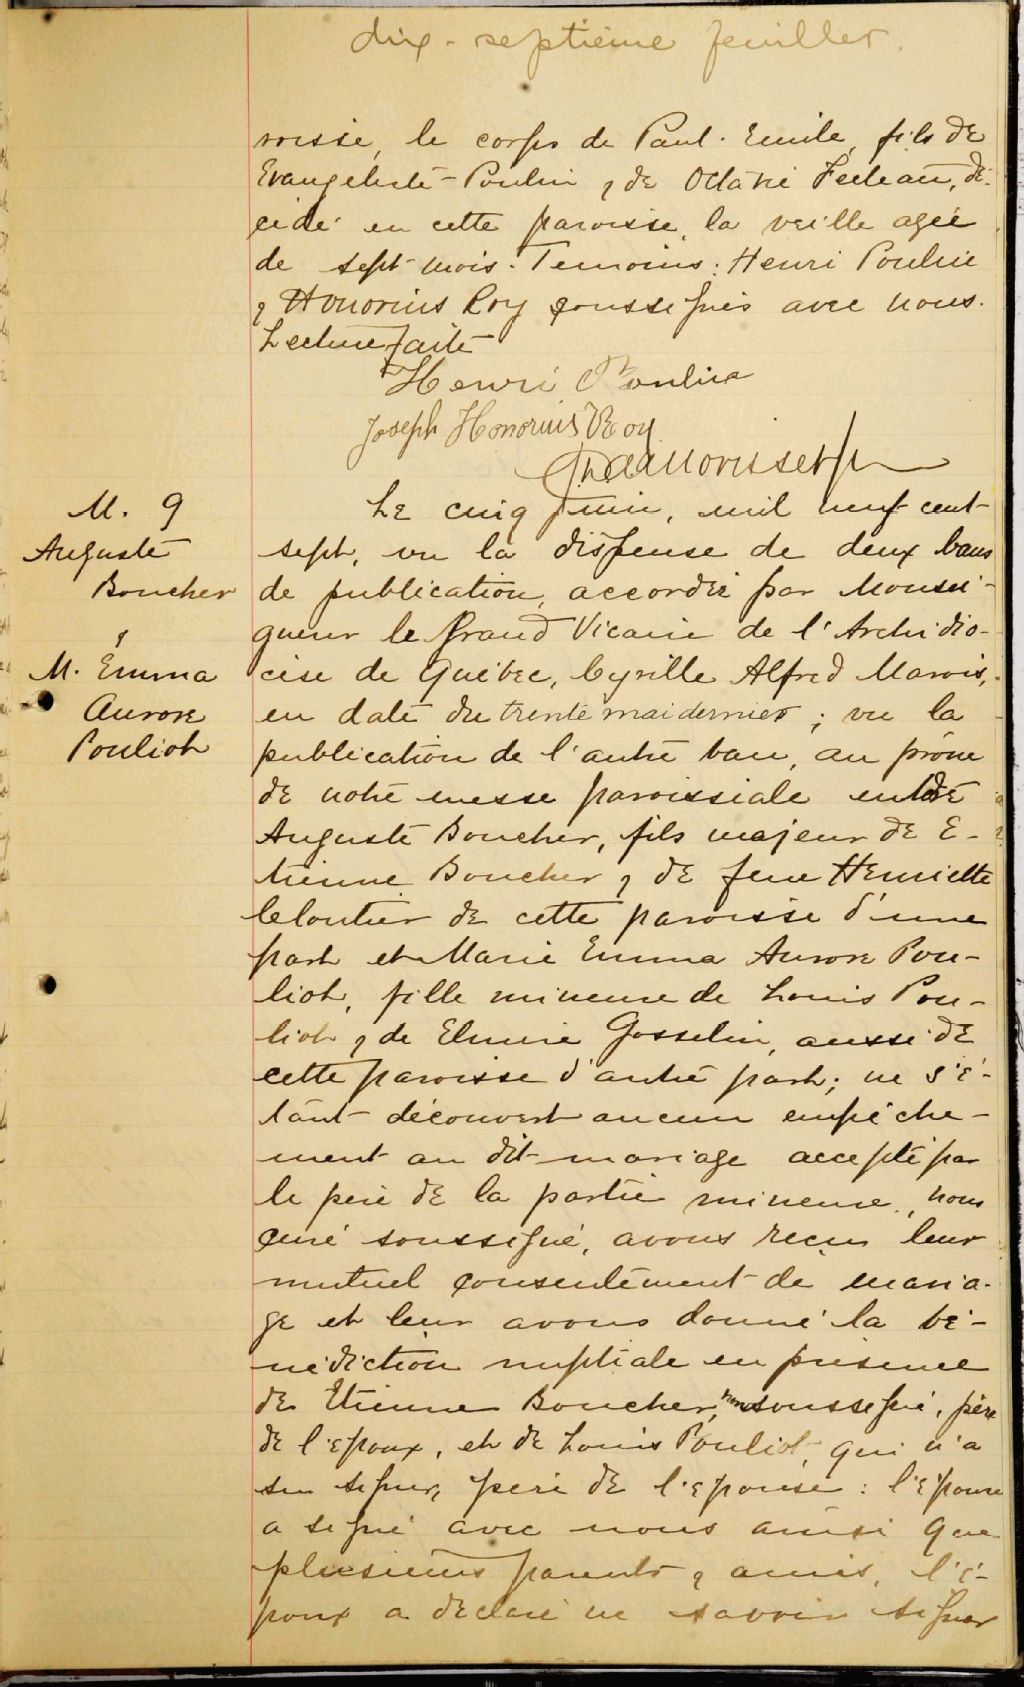 dix-septième feuillet.
roisse, le corps de Paul-Emile, fils de
Evangeliste Poulin & de Octavie Fecteau, dé-
cidé en cette paroisse, la veille agée
de sept mois. Temoins: Henri Poulin
& Honorius Roy soussignés avec nous.
Lecture faite
Henri Poulin
Joseph Honorius Roy
M. 9
Auguste
Boucher
&
M. Emma
Aurore
Pouliot
Le cinq juin, mil neuf cent
sept, vu la dispense de deux bans
de publication, accordée par Monsei-
gneur le Grand Vicaire de l'Archidio-
cèse de Québec, Cyrille Alfred Marois,
en date du trente mai dernier; vu la
publication de l'autre ban, au prône
de notre messe paroissiale entre
Auguste Boucher, fils majeur de E-
tienne Boucher & de feue Henriette
Cloutier de cette paroisse d'une
part et Marie Emma Aurore Pou-
liot, fille mineure de Louis Pou-
liot & de Elmire Gosselin, aussi de
cette paroisse d'autre part; ne s'é-
tant découvert aucun empêche-
ment au dit mariage accepté par
le père de la partie mineure, nous
curé soussigné, avons reçu leur
mutuel consentement de maria-
ge et leur avons donné la bé-
nédiction nuptiale en présence
de Etienne Boucher, non soussigné, père
de l'époux, et de Louis Pouliot, qui n'a
su signer, père de l'épouse: l'épouse
a signé avec nous ainsi que
plusieurs parents & amis, l'é-
poux a déclaré ne savoir signer